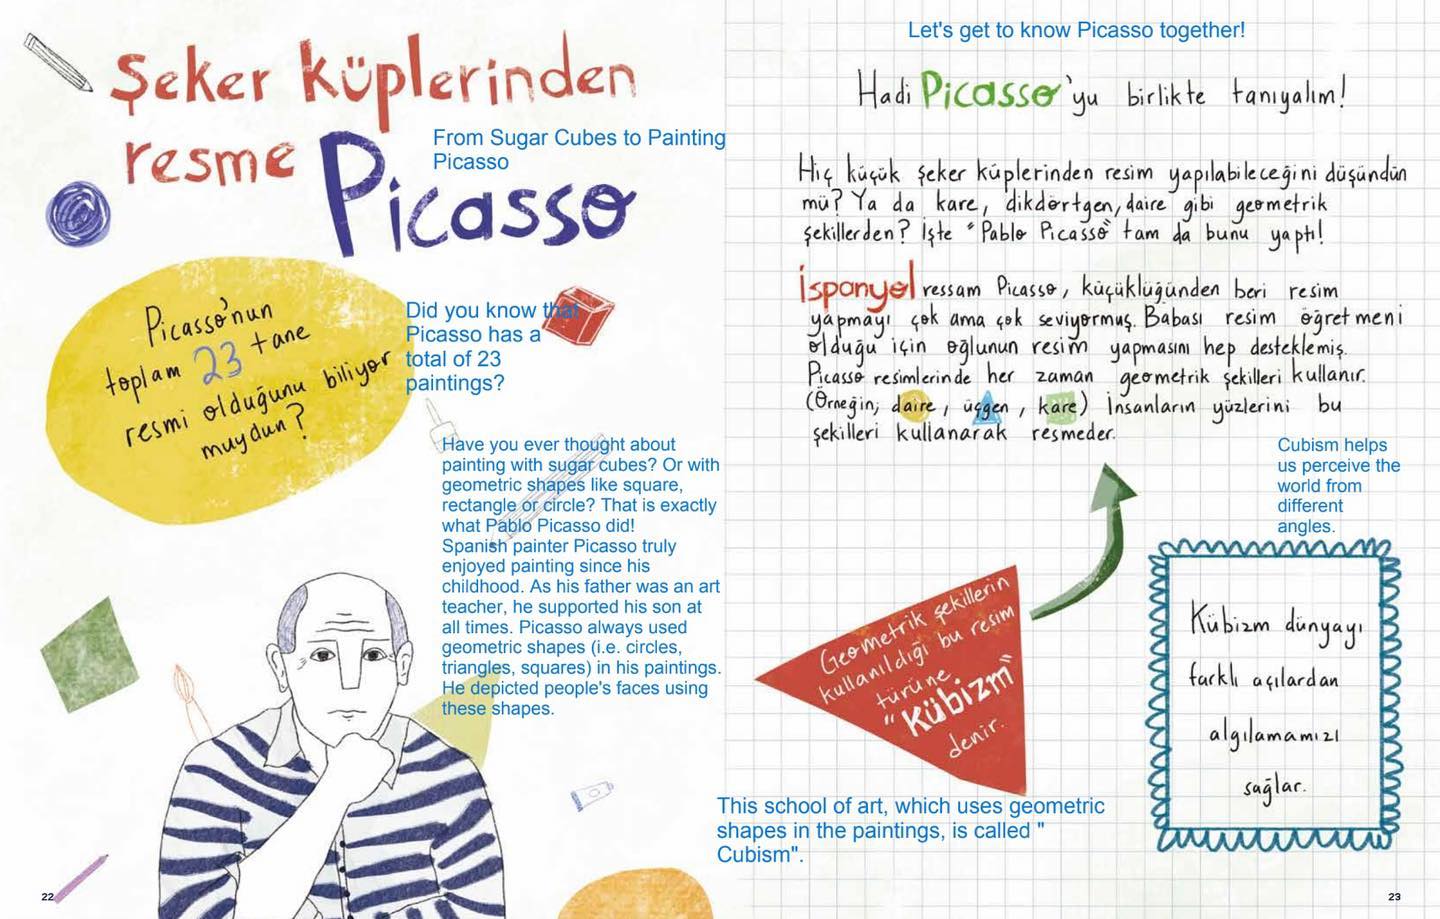 Şeker küplerinden
resme Picasso
From Sugar Cubes to Painting
Picasso
Picasso'nun
toplam 23 tane
resmi olduğunu biliyor
muydun?
Did you know that
Picasso has a
total of 23
paintings?
Have you ever thought about
painting with sugar cubes? Or with
geometric shapes like square,
rectangle or circle? That is exactly
what Pablo Picasso did!
Spanish painter Picasso truly
enjoyed painting since his
childhood. As his father was an art
teacher, he supported his son at
all times. Picasso always used
geometric shapes (i.e. circles,
triangles, squares) in his paintings.
He depicted people's faces using
these shapes.
22
Let's get to know Picasso together!
Hadi Picasso'yu birlikte tanıyalım!
Hiç küçük şeker küplerinden resim yapılabileceğini düşündün
mü? Ya da kare, dikdörtgen, daire gibi geometrik
şekillerden? İşte "Pablo Picasso" tam da bunu yaptı!
İspanyol ressam Picasso, küçüklüğünden beri resim
yapmayı çok ama çok seviyormuş. Babası resim öğretmeni
olduğu için oğlunun resim yapmasını hep desteklemiş.
Picasso resimlerinde her zaman geometrik şekilleri kullanır.
(Örneğin; daire, üçgen, kare) İnsanların yüzlerini bu
şekilleri kullanarak resmeder.
Geometrik şekillerin
kullanıldığı bu resim
türüne
"Kübizm"
denir.
This school of art, which uses geometric
shapes in the paintings, is called "
Cubism".
Cubism helps
us perceive the
world from
different
angles.
Kübizm dünyayı
farklı açılardan
algılamamızı
sağlar.
23